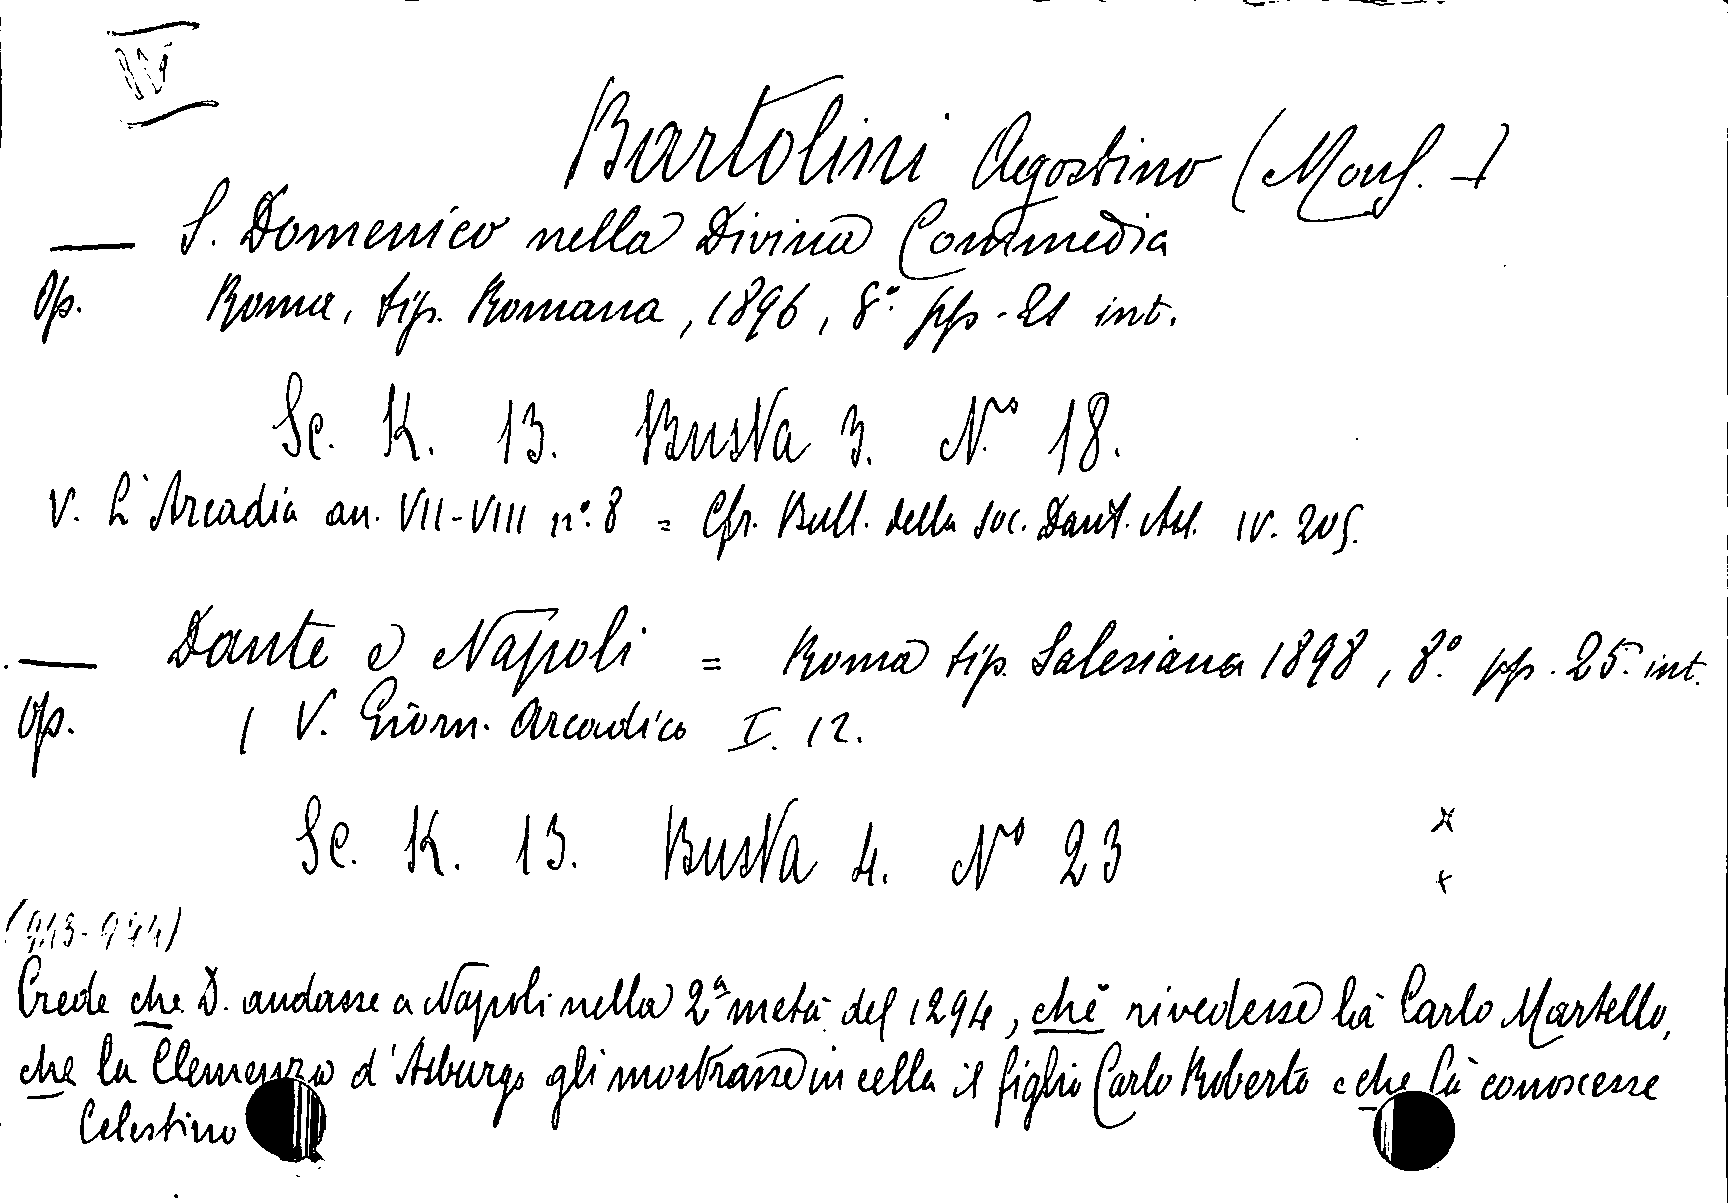 IV
Bartolini Agostino (Mons. -)
— S. Domenico nella Divina Commedia
Op. Roma, tip. Romana, 1896, 8.º pp. 21 int.
Sc. K. 13. Busta 3. Nº 18.
V. L'Arcadia an. VII-VIII nº. 8 = Cfr. Bull. della Soc. Dant. Ital. IV. 205.
— Dante e Napoli = Roma tip. Salesiana 1898, 8º pp. 25. int.
Op. / V. Giorn. Arcadico I. 12.
Sc. K. 13. Busta 4. Nº 23 x
x
(943-944)
Crede che D. andasse a Napoli nella 2ª metà del 1294, che rivedesse là Carlo Martello,
che la Clemenza d'Asburgo gli mostrasse in cella il figlio Carlo Roberto e che là conoscesse
Celestino